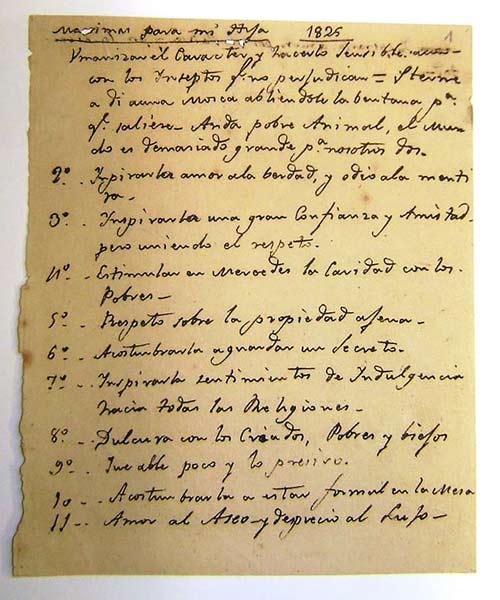 Maximas para mi Hija 1825 1
Umanizar el Caracter y hacerlo sensible aun
con los Inseptos q.e no perjudican = Sterne
a di a una Mosca abriendole la bentana p.a
q.e saliese - Anda pobre Animal, el Mun
do es demasiado grande p.a nosotros dos.
2º. Inspirarla amor ala berdad, y odio ala menti
ra.
3º. Inspirarla una gran Confianza y Amistad
pero uniendo el respeto.
4º. Estimular en Mercedes la Caridad con los
Pobres -
5º. Respeto sobre la propiedad ajena -
6º. Acostumbrarla a guardar un Secreto.
7º. Inspirarla sentimientos de Indulgencia
hacia todas las Religiones -
8º. Dulsura con los Criados, Pobres y biejos
9º. Que able poco y lo presiso.
10. Acostumbrarla a estar formal en la Mesa
11. Amor al Aseo y desprecio al Lujo -